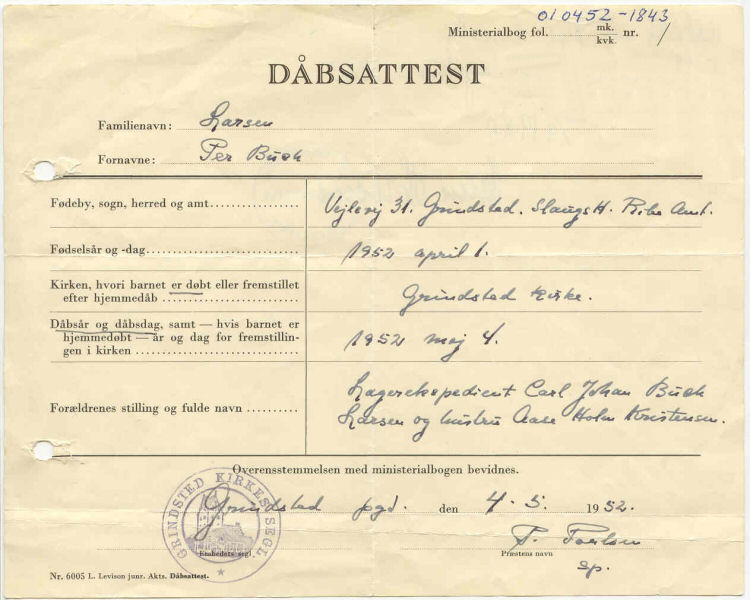 010452-1843
Ministerialbog fol. mk. kvk. nr. 1
DÅBSATTEST
Familienavn: Larsen
Fornavne: Per Buch
Fødeby, sogn, herred og amt Vejlevej 31. Grindsted. Slaugs H. Ribe Amt.
Fødselsår og -dag 1952 april 1.
Kirken, hvori barnet er døbt eller fremstillet
efter hjemmedåb Grindsted Kirke.
Dåbsår og dåbsdag, samt — hvis barnet er
hjemmedøbt — år og dag for fremstillin-
gen i kirken 1952 maj 4.
Forældrenes stilling og fulde navn Lagerekspedient Carl Johan Buch
Larsen og hustru Aase Holm Kristensen.
Overensstemmelsen med ministerialbogen bevidnes.
Grindsted pgd. den 4. 5. 1952.
GRINDSTED KIRKES SEGL.
Embedets segl. Præstens navn
sp.
Nr. 6005 L. Levison junr. Akts. Dåbsattest.